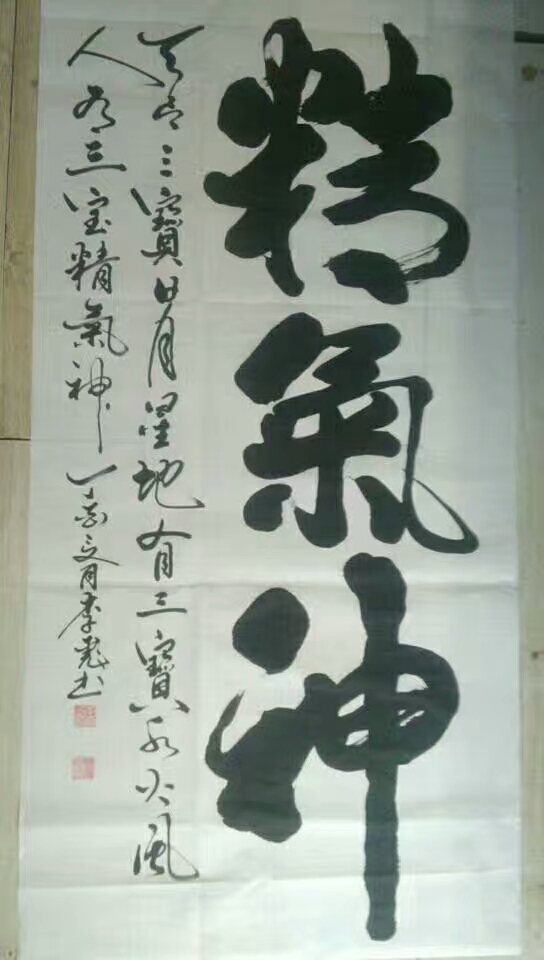 精氣神
天有三寶日月星地有三寶水火風
人有三宝精氣神 丁亥之月李彪书